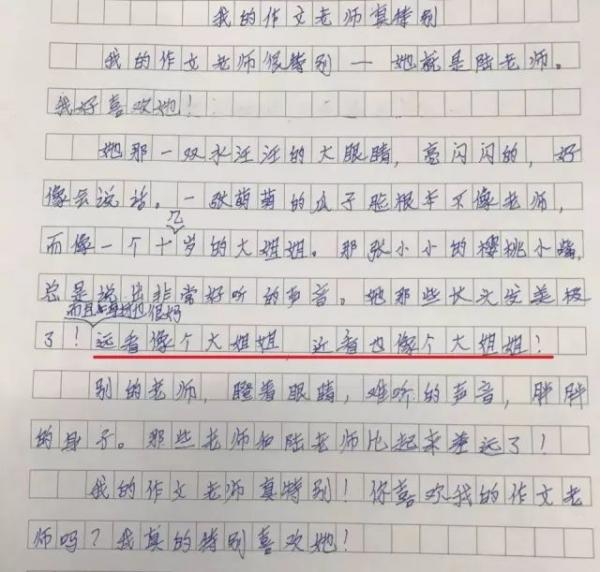 我的作文老师真特别
我的作文老师很特别——她就是陆老师。
我好喜欢她！
她那一双水汪汪的大眼睛，亮闪闪的，好
像会说话。一张萌萌的瓜子脸根本不像老师，
而像一个十几岁的大姐姐。那张小小的樱桃小嘴，
总是说出非常好听的声音。她那些长头发美极
了！而且身材也很好
远看像个大姐姐 近看也像个大姐姐！
别的老师，瞪着眼睛，难听的声音，胖胖
的身子。那些老师和陆老师比起来差远了！
我的作文老师真特别！你喜欢我的作文老
师吗？我真的特别喜欢她！